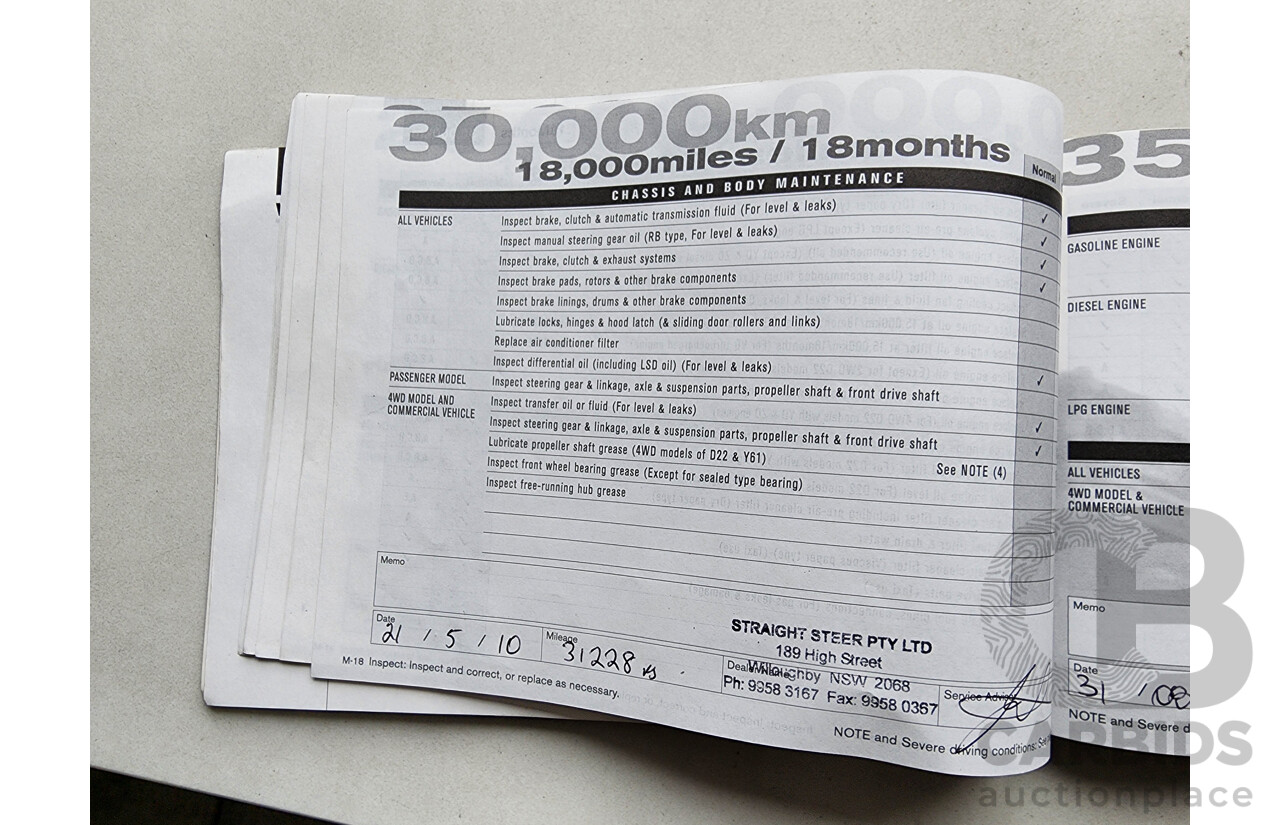 30,000km
18,000miles / 18months
Normal
CHASSIS AND BODY MAINTENANCE
ALL VEHICLES
Inspect brake, clutch & automatic transmission fluid (For level & leaks) ✓
Inspect manual steering gear oil (RB type, For level & leaks) ✓
Inspect brake, clutch & exhaust systems ✓
Inspect brake pads, rotors & other brake components ✓
Inspect brake linings, drums & other brake components
Lubricate locks, hinges & hood latch (& sliding door rollers and links)
Replace air conditioner filter
Inspect differential oil (including LSD oil) (For level & leaks) ✓
PASSENGER MODEL
Inspect steering gear & linkage, axle & suspension parts, propeller shaft & front drive shaft
4WD MODEL AND
COMMERCIAL VEHICLE
Inspect transfer oil or fluid (For level & leaks) ✓
Inspect steering gear & linkage, axle & suspension parts, propeller shaft & front drive shaft ✓
Lubricate propeller shaft grease (4WD models of D22 & Y61) See NOTE (4)
Inspect front wheel bearing grease (Except for sealed type bearing)
Inspect free-running hub grease
Memo
Date
21 / 5 / 10
Mileage
31228
STRAIGHT STEER PTY LTD
189 High Street
Willoughby NSW 2068
Ph: 9958 3167 Fax: 9958 0367
Service Advisor
M-18 Inspect: Inspect and correct, or replace as necessary.
NOTE and Severe driving conditions: See
35
GASOLINE ENGINE
DIESEL ENGINE
LPG ENGINE
ALL VEHICLES
4WD MODEL &
COMMERCIAL VEHICLE
Memo
Date
31 / 08
NOTE and Severe d
CB
CARBIDS
auctionplace